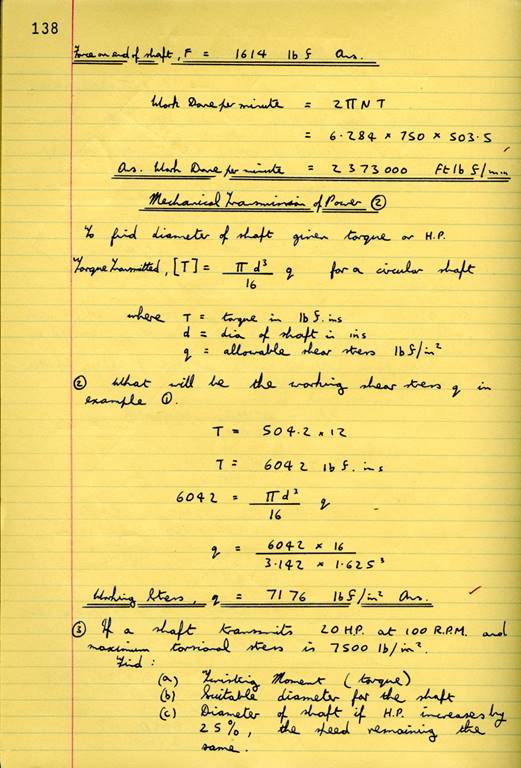 138
Force on end of shaft, F = 1614 lb f Ans.
Work Done per minute = 2πNT
= 6·284 × 750 × 503·5
Ans. Work Done per minute = 2373000 Ft lb f/min
Mechanical Transmission of Power ②
To find diameter of shaft given torque or H.P.
Torque Transmitted, [T] = πd³/16 q for a circular shaft
where T = torque in lb f. ins
d = dia of shaft in ins
q = allowable shear stress lb f/in²
② What will be the working shear stress q in
example ①.
T = 504·2 × 12
T = 6042 lb f. ins
6042 = πd³/16 q
q = 6042 × 16 / 3·142 × 1·625³
Working Stress, q = 7176 lb f/in² Ans.
③ If a shaft transmits 20 HP. at 100 R.P.M. and
maximum torsional stress is 7500 lb/in².
Find :
(a) Twisting Moment (torque)
(b) Suitable diameter for the shaft
(c) Diameter of shaft if H.P. increases by
25%, the speed remaining the
same.